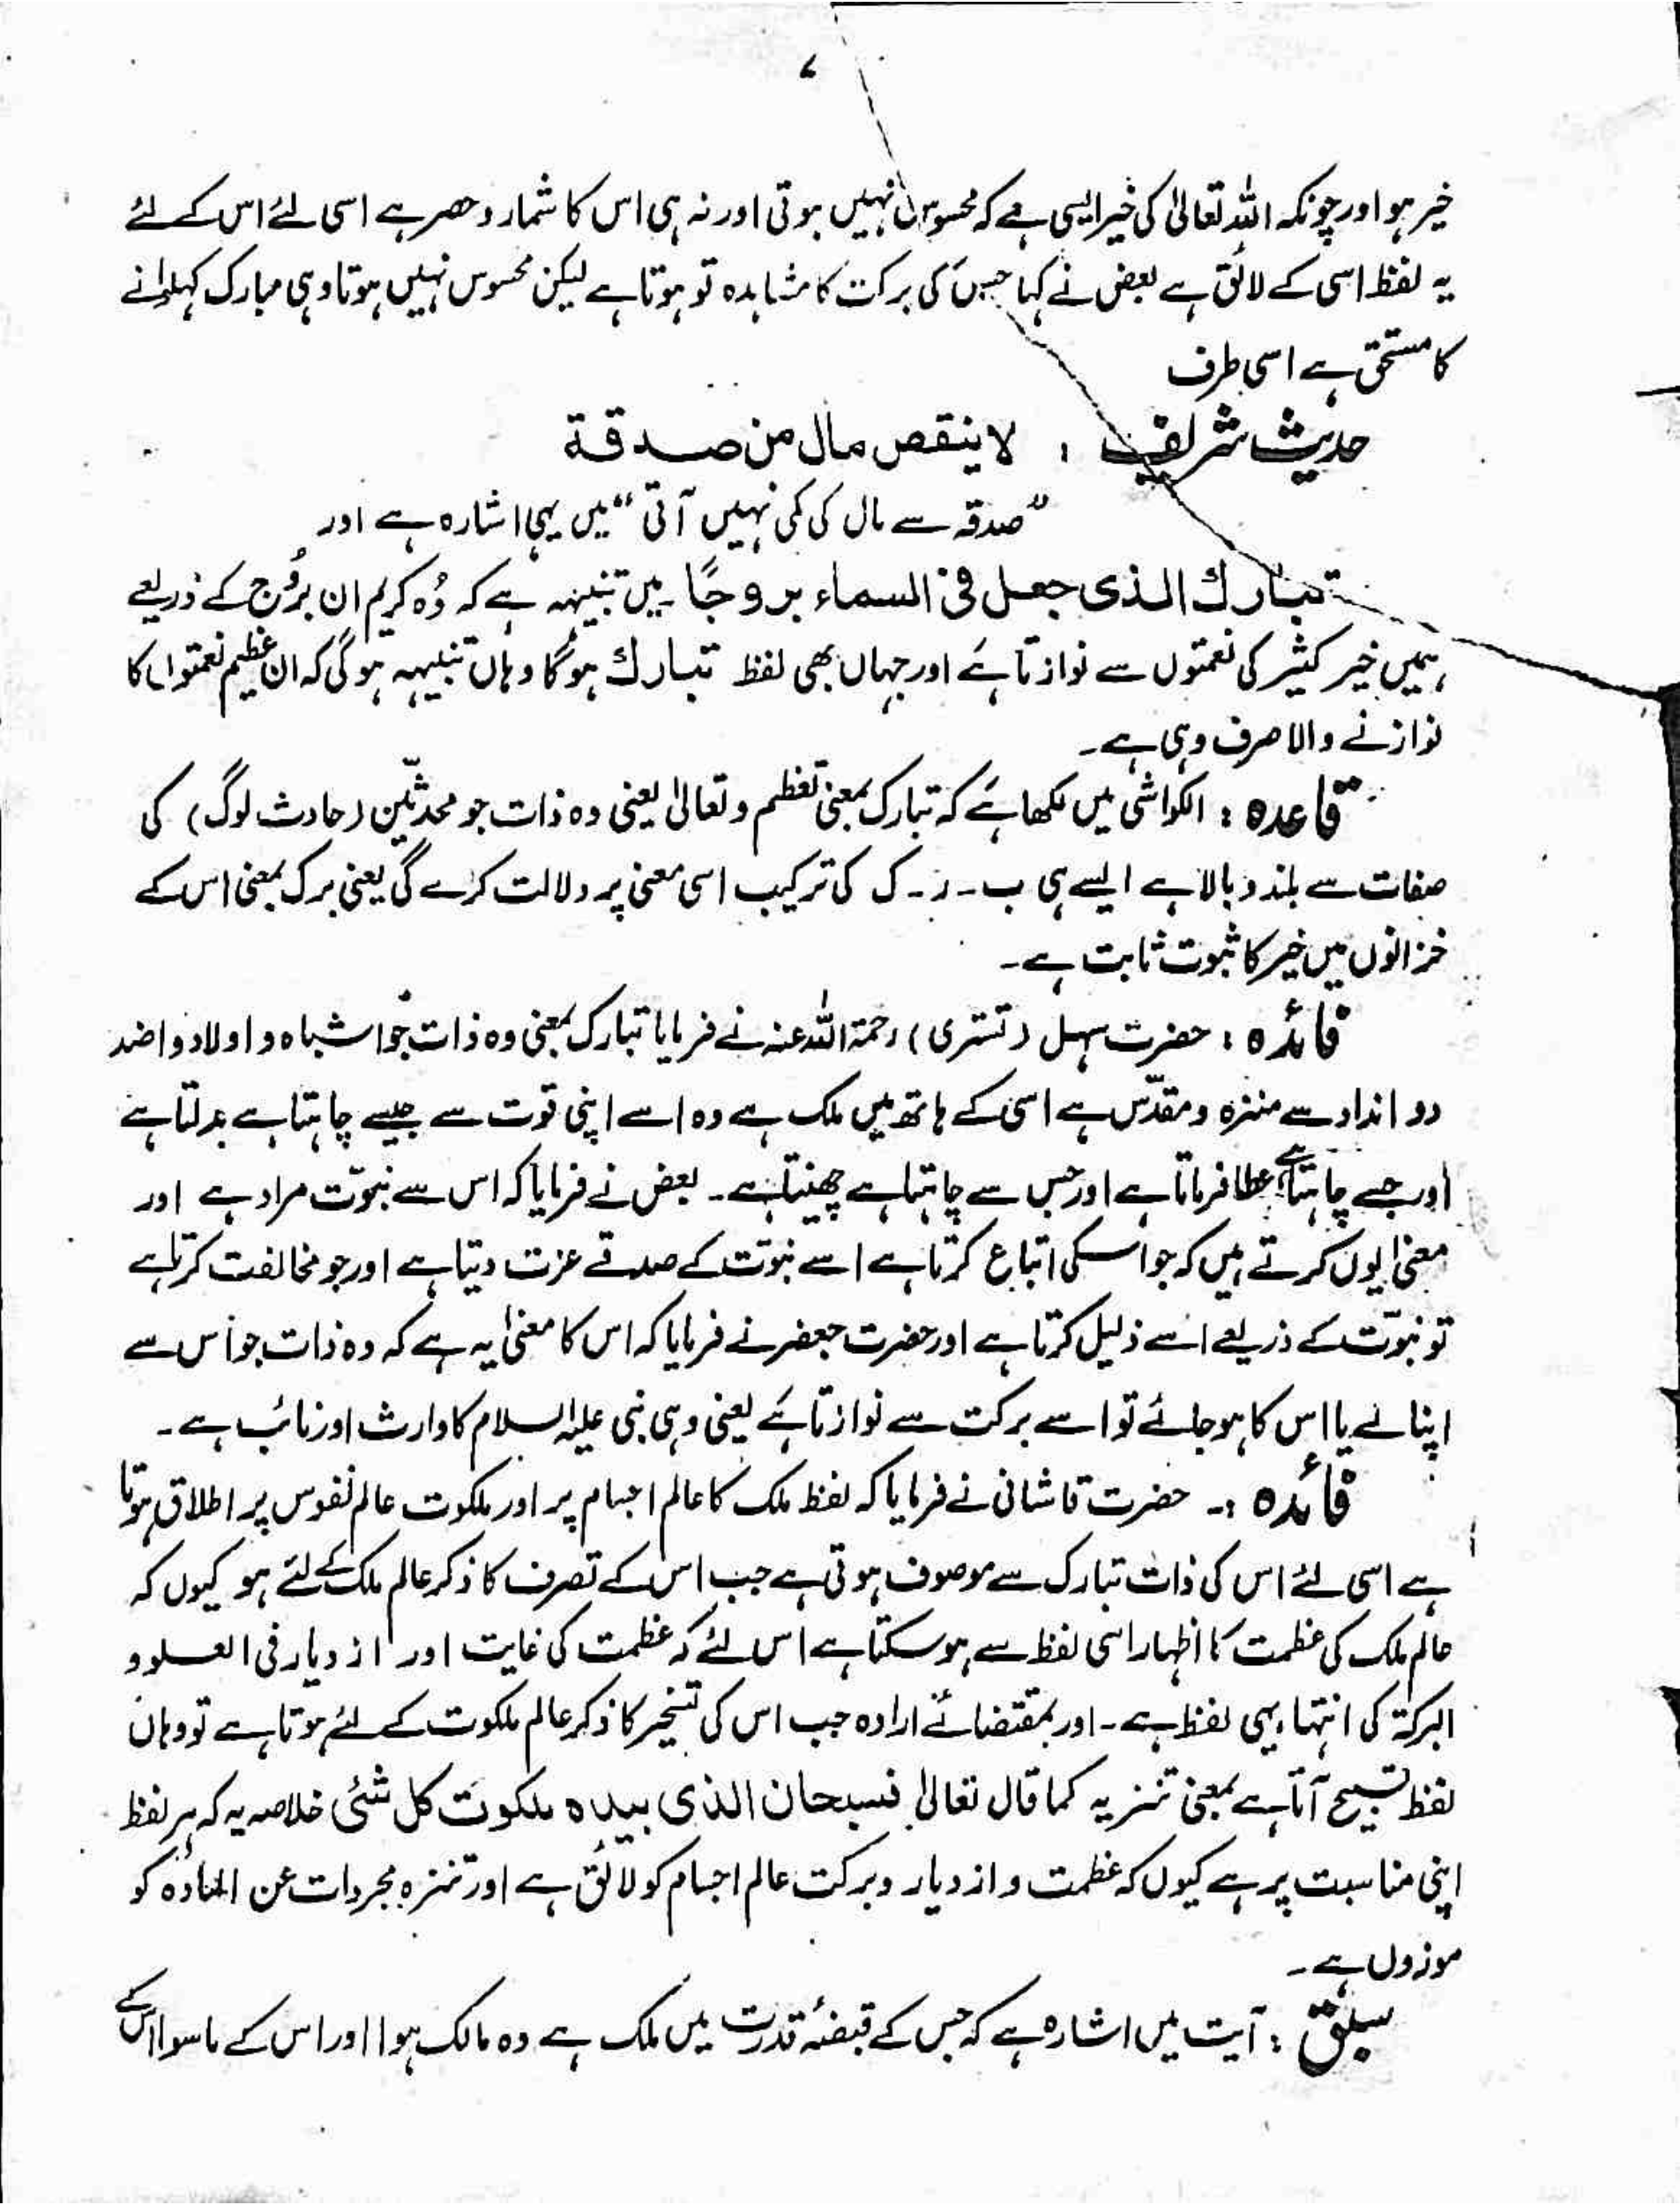 ۷
خیر ہو اور چونکہ اللہ تعالیٰ کی خیر ایسی ہے کہ محسوس نہیں ہوتی اور نہ ہی اس کا شمار و حصر ہے اسی لئے اس کے لئے
یہ لفظ اسی کے لائق ہے بعض نے کہا جس کی برکت کا مشاہدہ تو ہوتا ہے لیکن محسوس نہیں ہوتا وہی مبارک کہلوانے
کا مستحق ہے اسی طرف
حدیث شریف : لا ینقص مال من صدقة
"صدقہ سے مال کی کمی نہیں آتی" میں یہی اشارہ ہے اور
تبارك الذی جعل فی السماء بروجًا میں تنبیہہ ہے کہ وُہ کریم ان بُرُوج کے ذریعے
ہمیں خیر کثیر کی نعمتوں سے نوازتا ہے اور جہاں بھی لفظ تبارك ہوگا وہاں تنبیہہ ہوگی کہ ان عظیم نعمتوں کا
نوازنے والا صرف وہی ہے۔
قاعدہ : الکواشی میں لکھا ہے کہ تبارک بمعنی تعظم و تعالیٰ یعنی وہ ذات جو محدثین (حادث لوگ) کی
صفات سے بلند و بالا ہے ایسے ہی ب۔ر۔ک کی ترکیب اسی معنی پر دلالت کرے گی یعنی برک بمعنی اس کے
خزانوں میں خیر کا ثبوت ثابت ہے۔
فائدہ : حضرت سہل (تستری) رحمۃ اللہ عنہ نے فرمایا تبارک بمعنی وہ ذات جو اشباہ و اولاد و اضد
دو انداد سے منزہ و مقدّس ہے اسی کے ہاتھ میں ملک ہے وہ اسے اپنی قوت سے جیسے چاہتا ہے بدلتا ہے
اور جسے چاہتا ہے عطا فرماتا ہے اور جس سے چاہتا ہے چھینتا ہے۔ بعض نے فرمایا کہ اس سے نبوّت مراد ہے اور
معنیٰ یوں کرتے ہیں کہ جو اسکی اتباع کرتا ہے اسے نبوّت کے صدقے عزت دیتا ہے اور جو مخالفت کرتا ہے
تو نبوّت کے ذریعے اسے ذلیل کرتا ہے اور حضرت جعفر نے فرمایا کہ اس کا معنیٰ یہ ہے کہ وہ ذات جو اُس سے
اپنا لے یا اس کا ہو جائے تو اسے برکت سے نوازتا ہے یعنی وہی نبی علیہ السلام کا وارث اور نائب ہے۔
فائدہ :۔ حضرت قاشانی نے فرمایا کہ لفظ ملک کا عالم اجسام پر اور ملکوت عالم نفوس پر اطلاق ہوتا
ہے اسی لئے اس کی ذات تبارک سے موصوف ہوتی ہے جب اس کے تصرف کا ذکر عالم ملک کے لئے ہو کیوں کہ
عالم ملک کی عظمت کا اظہار اسی لفظ سے ہو سکتا ہے اس لئے کہ عظمت کی غایت اور ازدیاد فی العلو و
البرکۃ کی انتہا یہی لفظ ہے۔ اور بمقتضائے ارادہ جب اس کی تسخیر کا ذکر عالم ملکوت کے لئے ہوتا ہے تو وہاں
لفظ تسبیح آتا ہے بمعنی تنزیہ کما قال تعالیٰ فسبحان الذی بیدہ ملکوت کل شئی خلاصہ یہ کہ ہر لفظ
اپنی مناسبت پر ہے کیوں کہ عظمت و ازدیاد و برکت عالم اجسام کو لائق ہے اور تنزہ مجردات عن المادہ کو
موزوں ہے۔
سبق : آیت میں اشارہ ہے کہ جس کے قبضۂ قدرت میں ملک ہے وہ مالک ہوا اور اس کے ماسوا اس کے